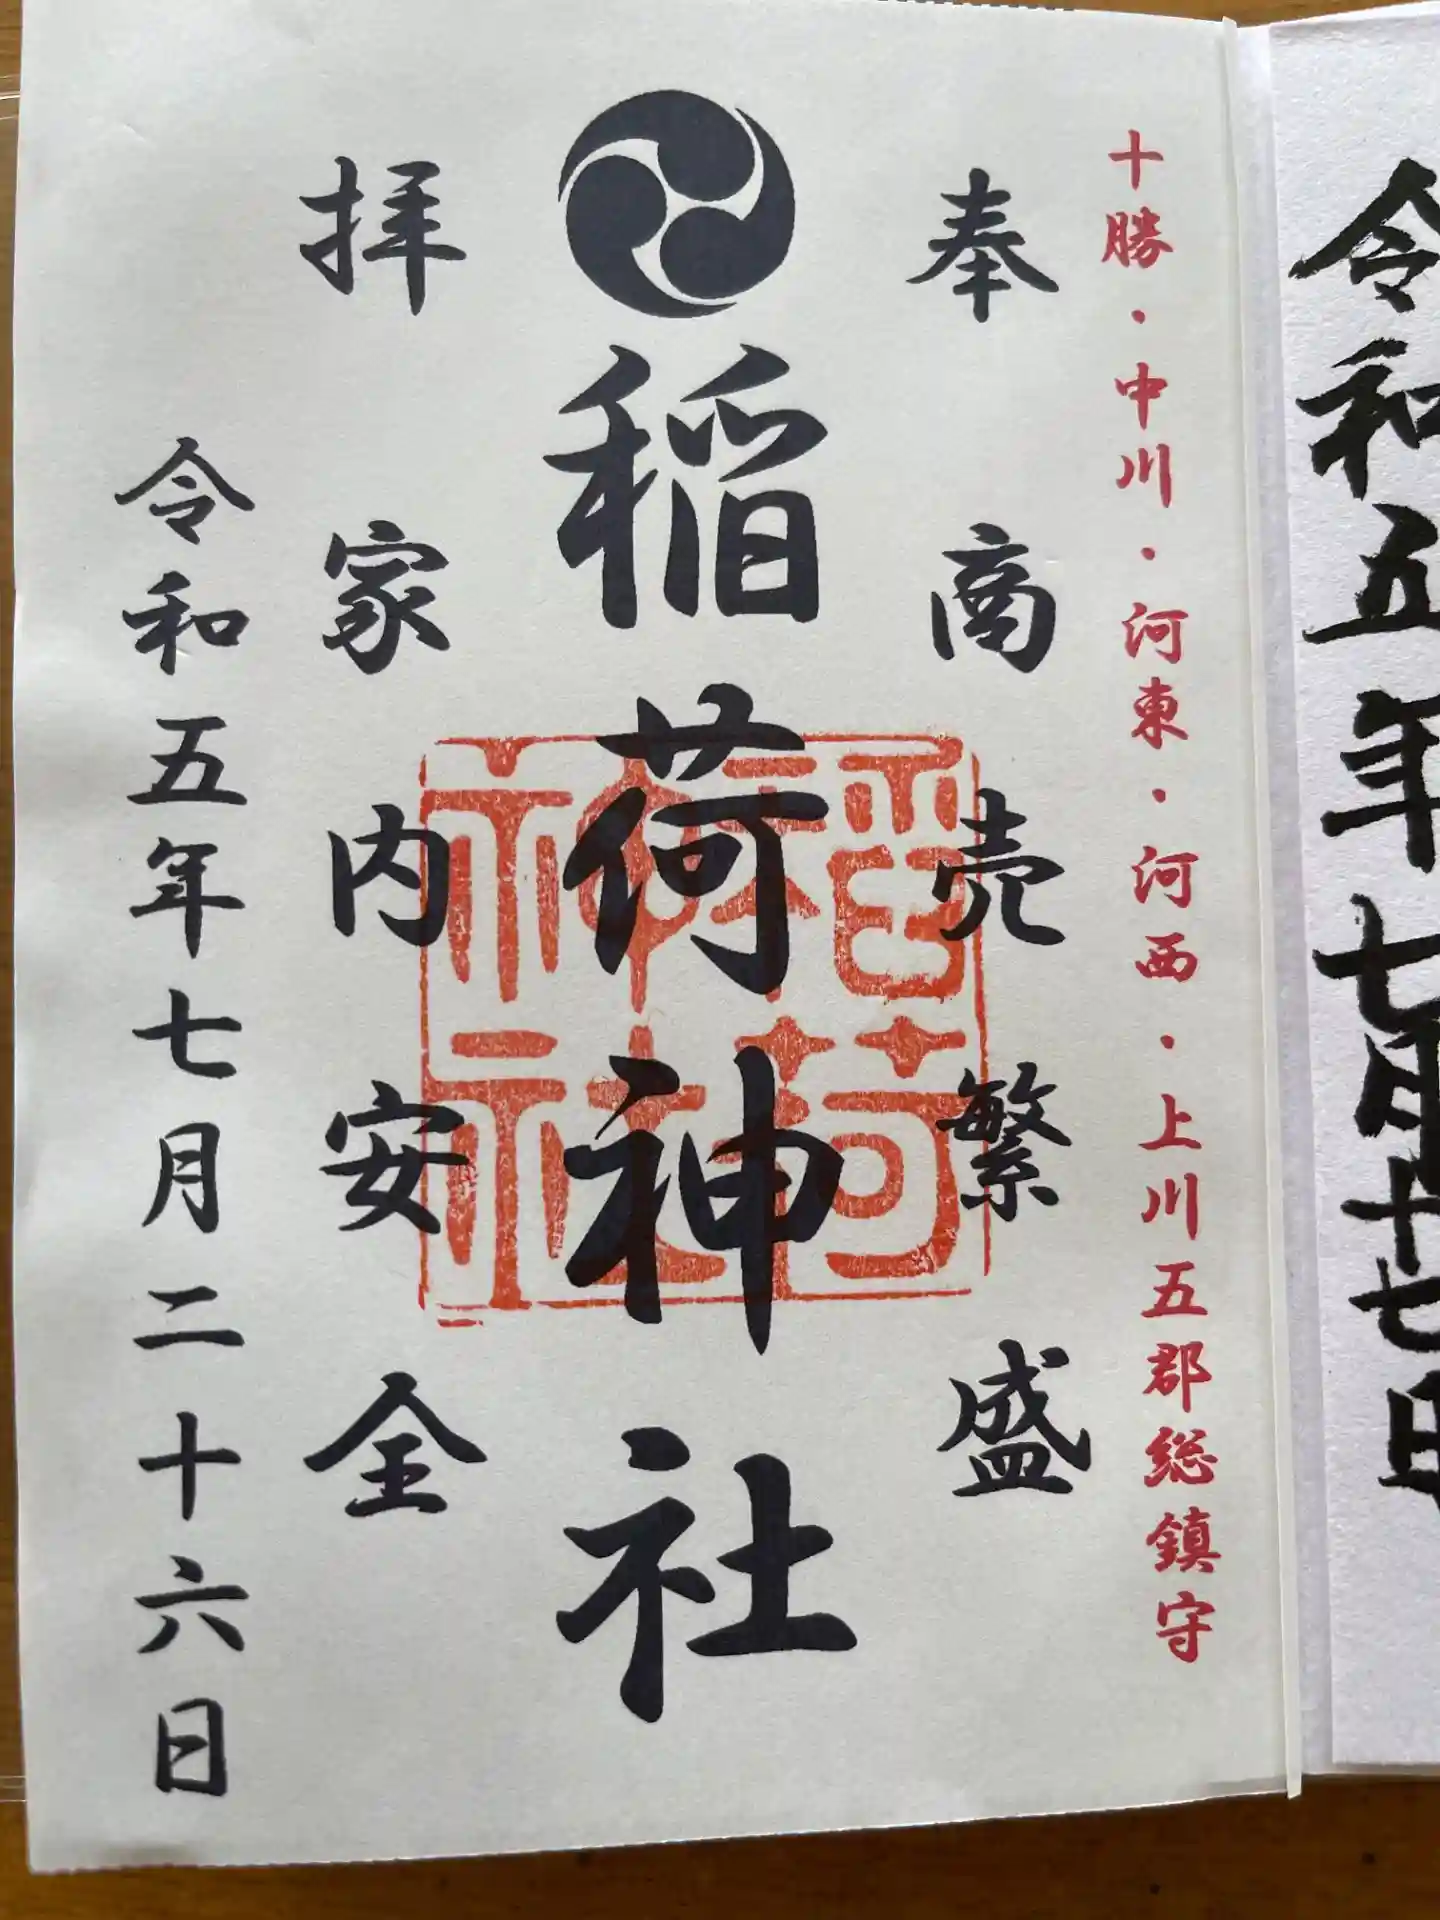 令和五年七月十七日
十勝・中川・河東・河西・上川五郡総鎮守
奉 商売繁盛
稲荷神社
稲荷神社
拝 家内安全
令和五年七月二十六日